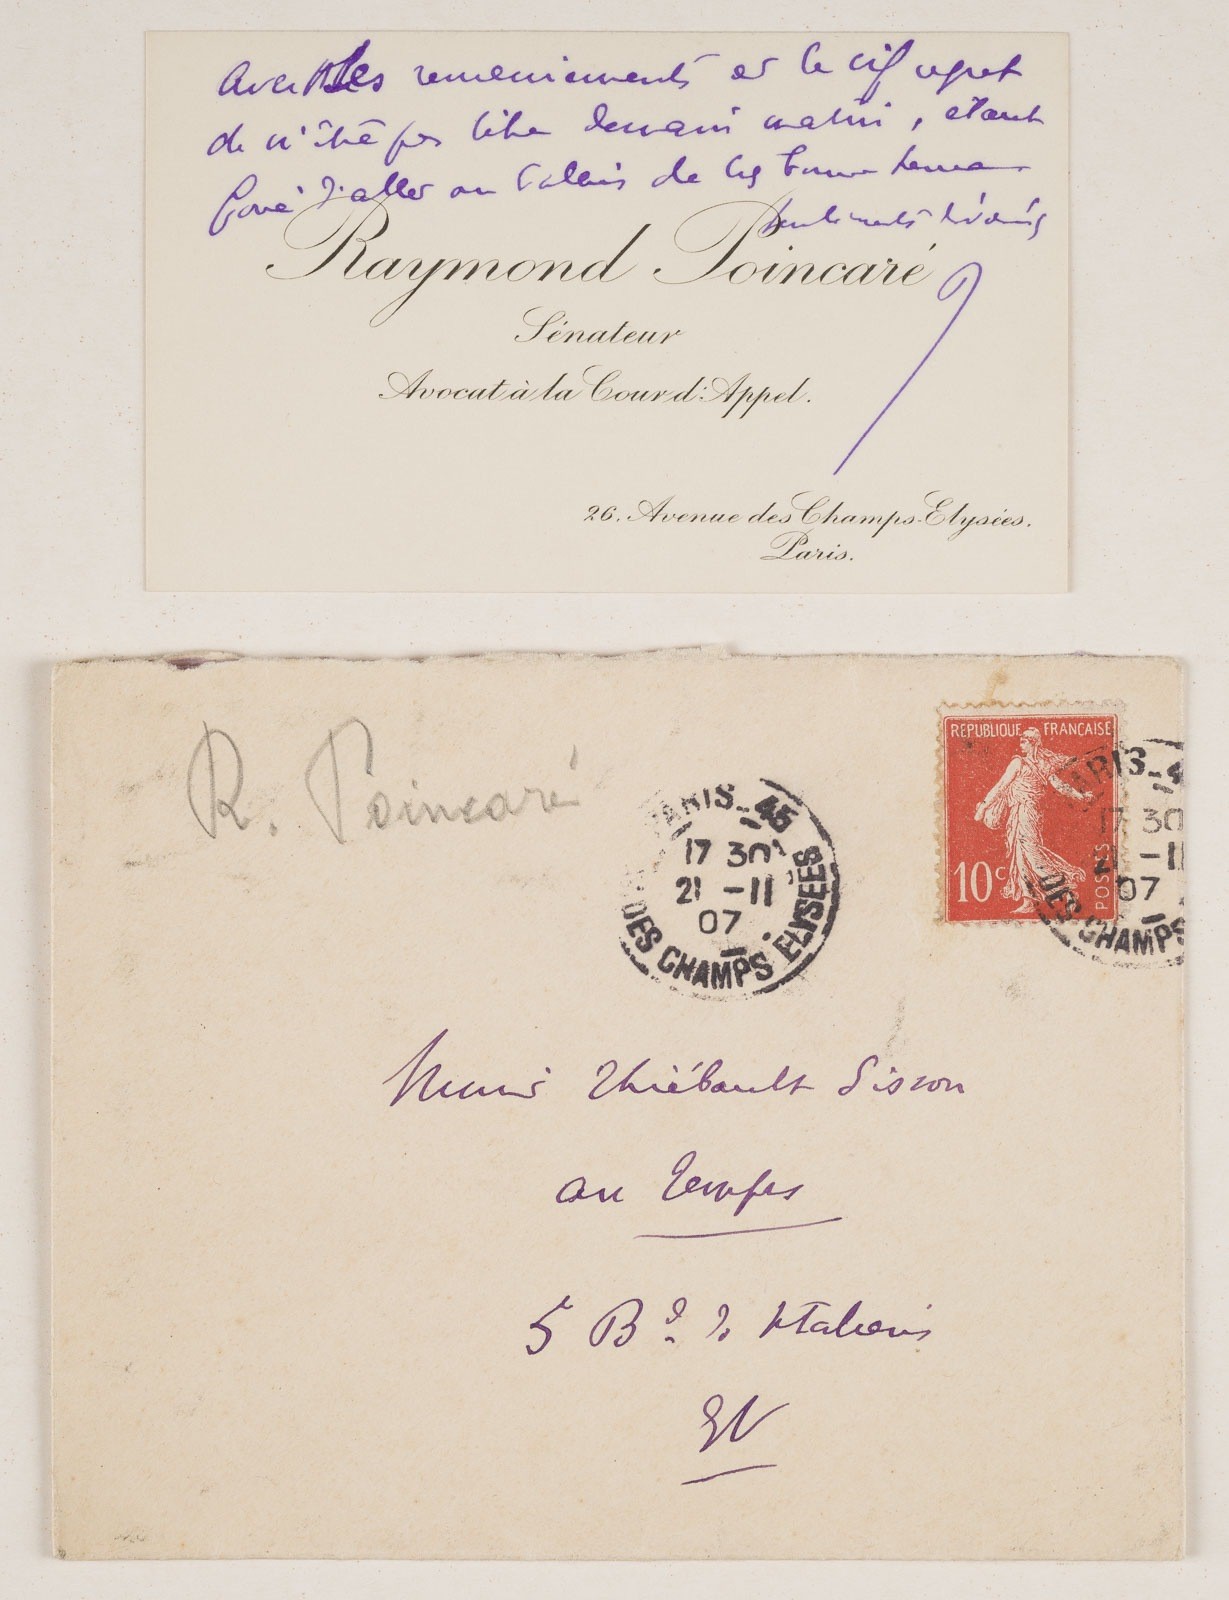 Avec ses remerciements et le vif regret
de n'être pas libre demain matin, étant
forcé d'aller au Palais de
sentiments dévoués
Raymond Poincaré
Sénateur
Avocat à la Cour d'Appel.
26. Avenue des Champs-Elysées.
Paris.
R. Poincaré
REPUBLIQUE FRANÇAISE
10c
POSTES
PARIS-45
17 30
21 -11
07
DES CHAMPS ELYSEES
PARIS-4
17 30
21 -11
07
DES CHAMPS
Thiébault Sisson
au Temps
5 Bd des Italiens
EV